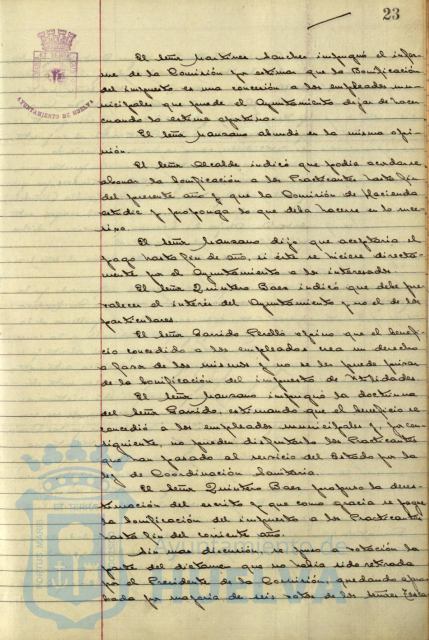 23
AYUNTAMIENTO DE HUELVA
El Señor Martinez Sanchez impugnó el infor-
me de la Comisión por estimar que la Bonificación
del impuesto es una concesión a los empleados mu-
nicipales que puede el Ayuntamiento dejar de hacer
cuando lo estime oportuno.
El Señor Manzano abundó en la misma opi-
nión.
El Señor Alcalde indicó que podia acordarse
abonar la bonificación a los Practicantes hasta fin
del presente año y que la Comisión de Hacienda
estudie y proponga lo que deba hacerse en lo suce-
sivo.
El Señor Manzano dijo que aceptaria el
pago hasta fin de año, si éste se hiciere directa-
mente por el Ayuntamiento a los interesados.
El Señor Quintero Baez indicó que debe pre-
valecer el interés del Ayuntamiento y no el de los
particulares.
El Señor Garrido Perelló opinó que el benefi-
cio concedido a los empleados crea un derecho
a favor de los mismos y no se les puede privar
de la bonificación del impuesto de Utilidades.
El Señor Manzano impugnó la doctrina
del Señor Garrido, estimando que el beneficio se
concedió a los empleados municipales y por con-
siguiente, no pueden disfrutarlo los Practicantes
que han pasado al servicio del Estado por la
Ley de Coordinación Sanitaria.
El Señor Quintero Baez propuso la deses-
timación del escrito y que como gracia se pague
la bonificación del impuesto a los Practicantes
hasta fin del corriente año.
Sin mas discusión se puso a votación la
parte del dictamen que no habia sido retirada
por el Presidente de la Comisión, quedando apro-
bada por mayoria de seis votos de los Señores